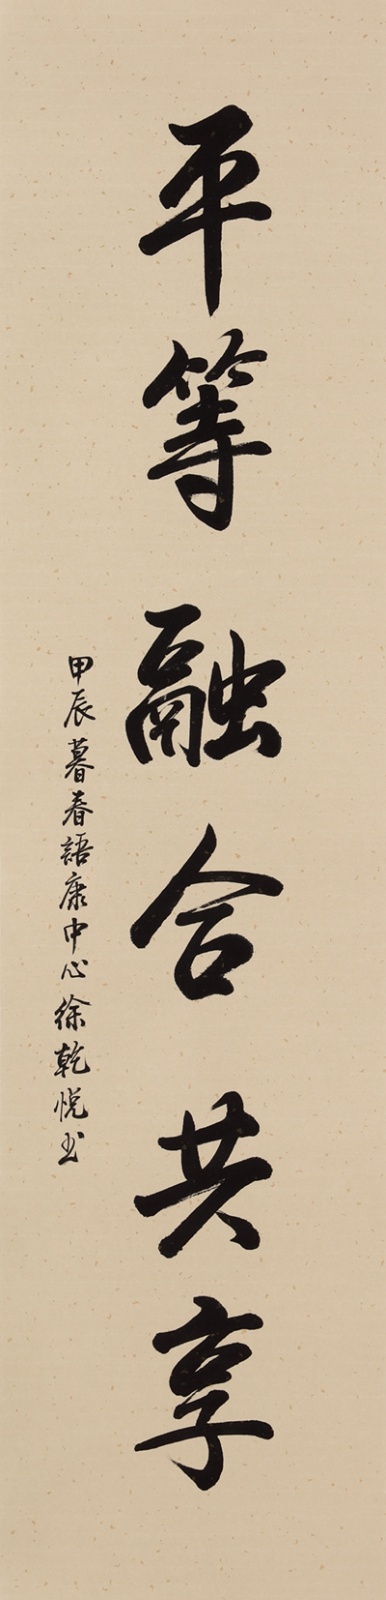 平等融合共享
甲辰暮春語康中心徐乾悅书